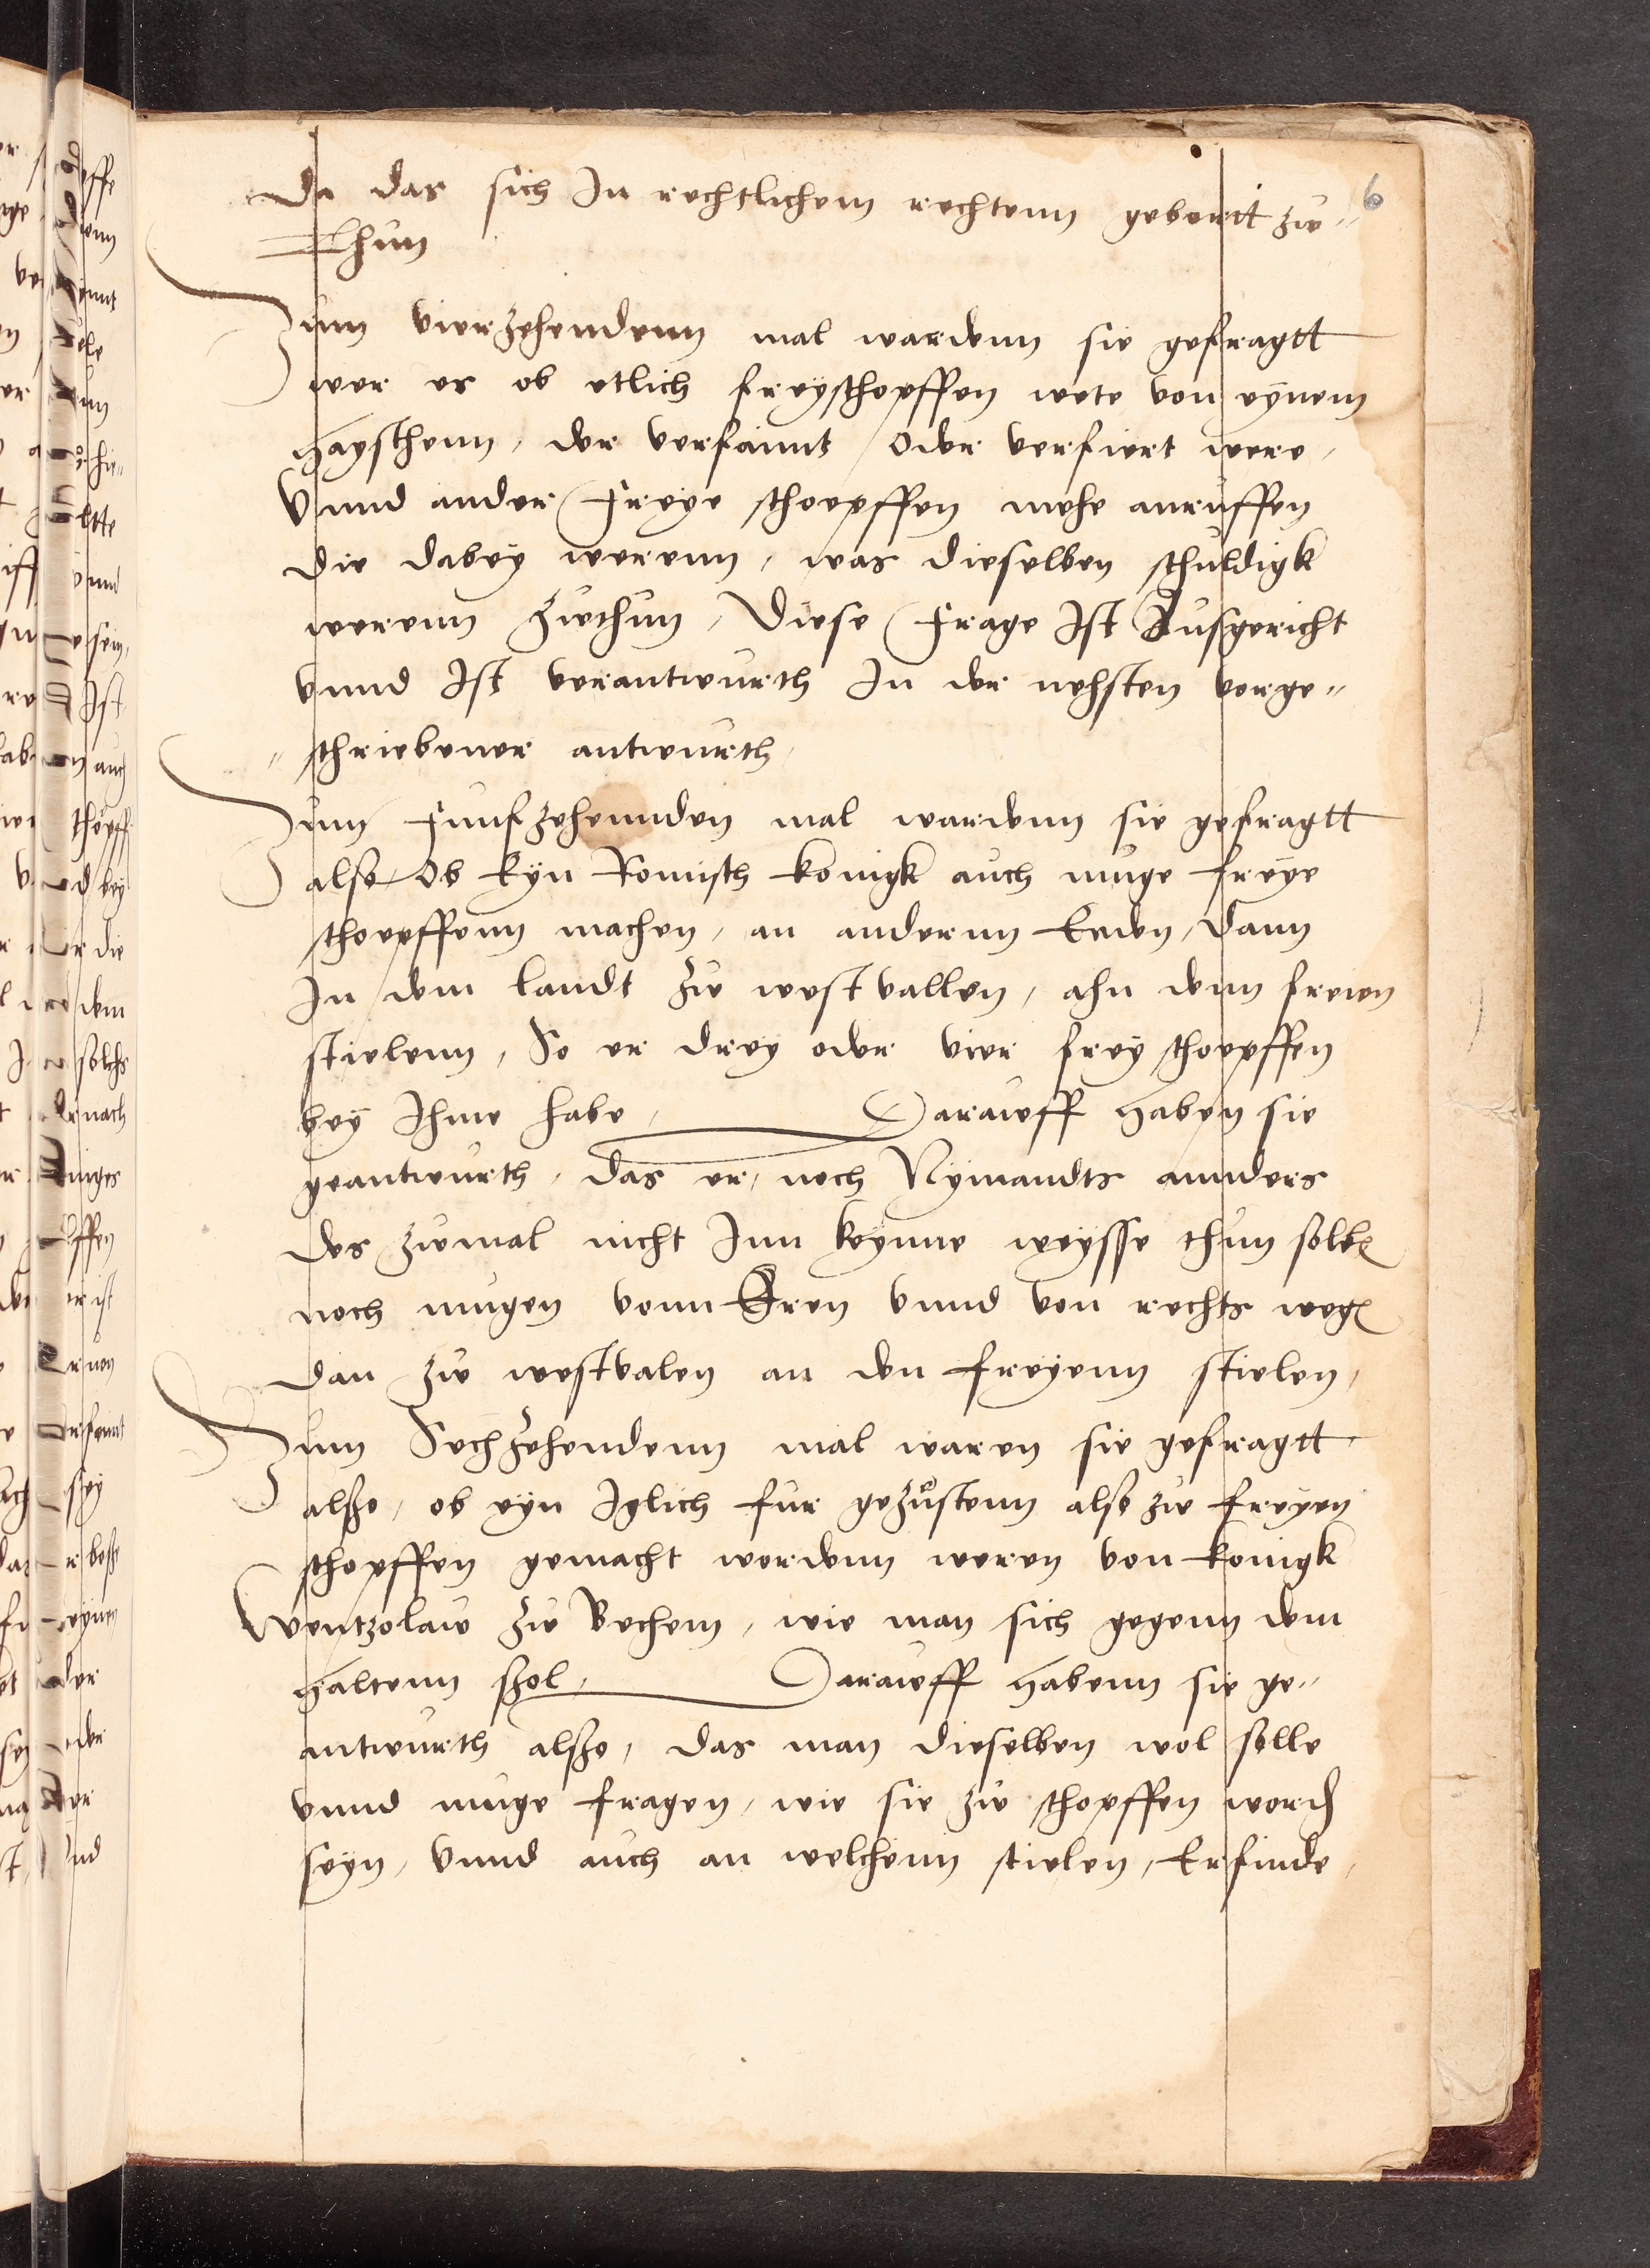 Da das sich In rechtlichem rechtenn geberitt zw- 6
Thun
Zum vierzehendenn mal wardenn sie gefragtt
wer es ob etlich freyschopffen wete von eynem
hayschenn, der verfaimt / Oder verfiert were,
Vnnd ander Freye schoepffen mehe anruffen
die dabey werenn, was dieselben schuldigk
werenn zwthun, Diese Frage Ist Ausgericht
vnnd Ist verantwurth In der nehsten vorge-
schriebener antwurth,
Zum Funfzehennden mal wardenn sie gefragtt
also, Ob Eyn Romisch konigk auch muge freye
schoepffenn machen, an anderenn Enden, Dann
In dem landt zw westvallen, ahn denn freien
stielenn, So er drey oder vier frey schoepffen
bey Ihme habe, Darawff haben sie
geantwurth, das er, noch Nymandts annders
des zwmal nicht Inn keynne weysse thun solle
noch mugen vonn Eren vnnd von rechts wegen
dan zw westvalen an den freyenn stielen,
Zum Sechzehendenn mal waren sie gefragtt
alsso, ob eyn Iglich fur gezustenn also zw freyen
schopffen gemacht werdenn weren von konigk
Wentzolaw zw Bechem, wie man sich gegenn dem
haltenn sol, Darawff habenn sie ge-
antwurth also, das man dieselben wol solle
vnnd muge fragen, wie sie zw schopffen worden
seyn, vnnd auch an welchenn stielen, Erfinde,